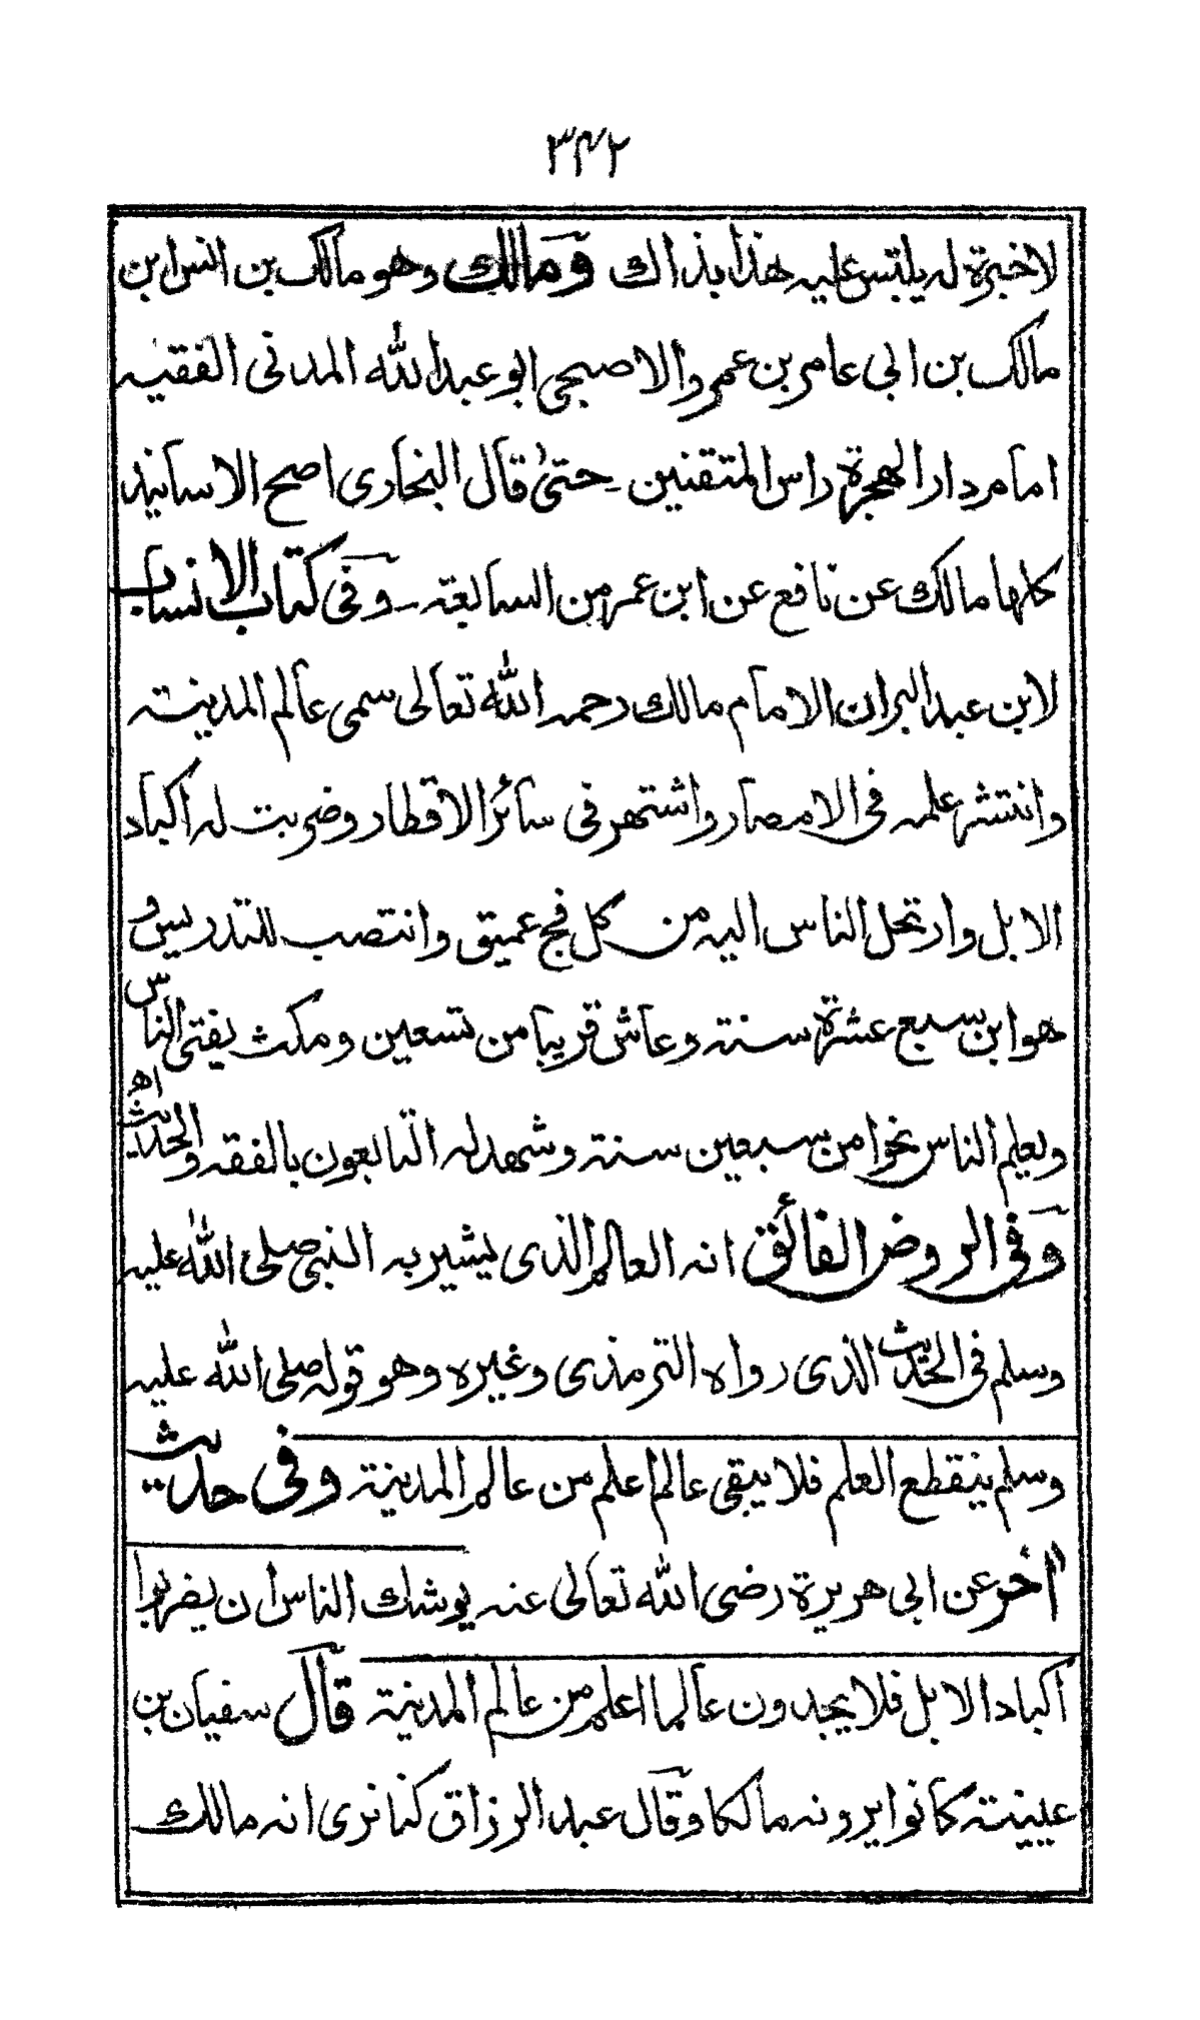 ٣٤٢
لا خبرة له يلتبس عليه هذا بذاك ومالك وهو مالك بن انس ابن
مالك بن ابي عامر بن عمرو الاصبحي ابو عبد الله المدنى الفقيه
امام دار الهجرة راس المتقنين ـ حتىٰ قال البخارى اصح الاسانيد
كلها مالك عن نافع عن ابن عمر من السابعة ـ وفى كتاب الانساب
لابن عبد البر ان الامام مالك رحمه الله تعالى سمى عالم المدينة
وانتشر علمه فى الامصار واشتهر فى سائر الاقطار وضربت له اكباد
الابل وارتحل الناس اليه من كل فج عميق وانتصب للتدريس و
هو ابن سبع عشرة سنة وعاش قريبا من تسعين ومكث يفتى الناس
ويعلم الناس نحوا من سبعين سنة وشهد له التابعون بالفقه والحديث اھ
وفى الروض الفائق انه العالم الذى يشير به النبى صلى الله عليه
وسلم فى الحديث الذى رواه الترمذى وغيره وهو قوله صلى الله عليه
وسلم ينقطع العلم فلا يبقى عالم اعلم من عالم المدينة وفى حديث
آخر عن ابى هريرة رضى الله تعالى عنه يوشك الناس ان يضربوا
اكباد الابل فلا يجدون عالما اعلم من عالم المدينة قال سفيان بن
عيينة كانوا يرونه مالكا وقال عبد الرزاق كنا نرى انه مالك